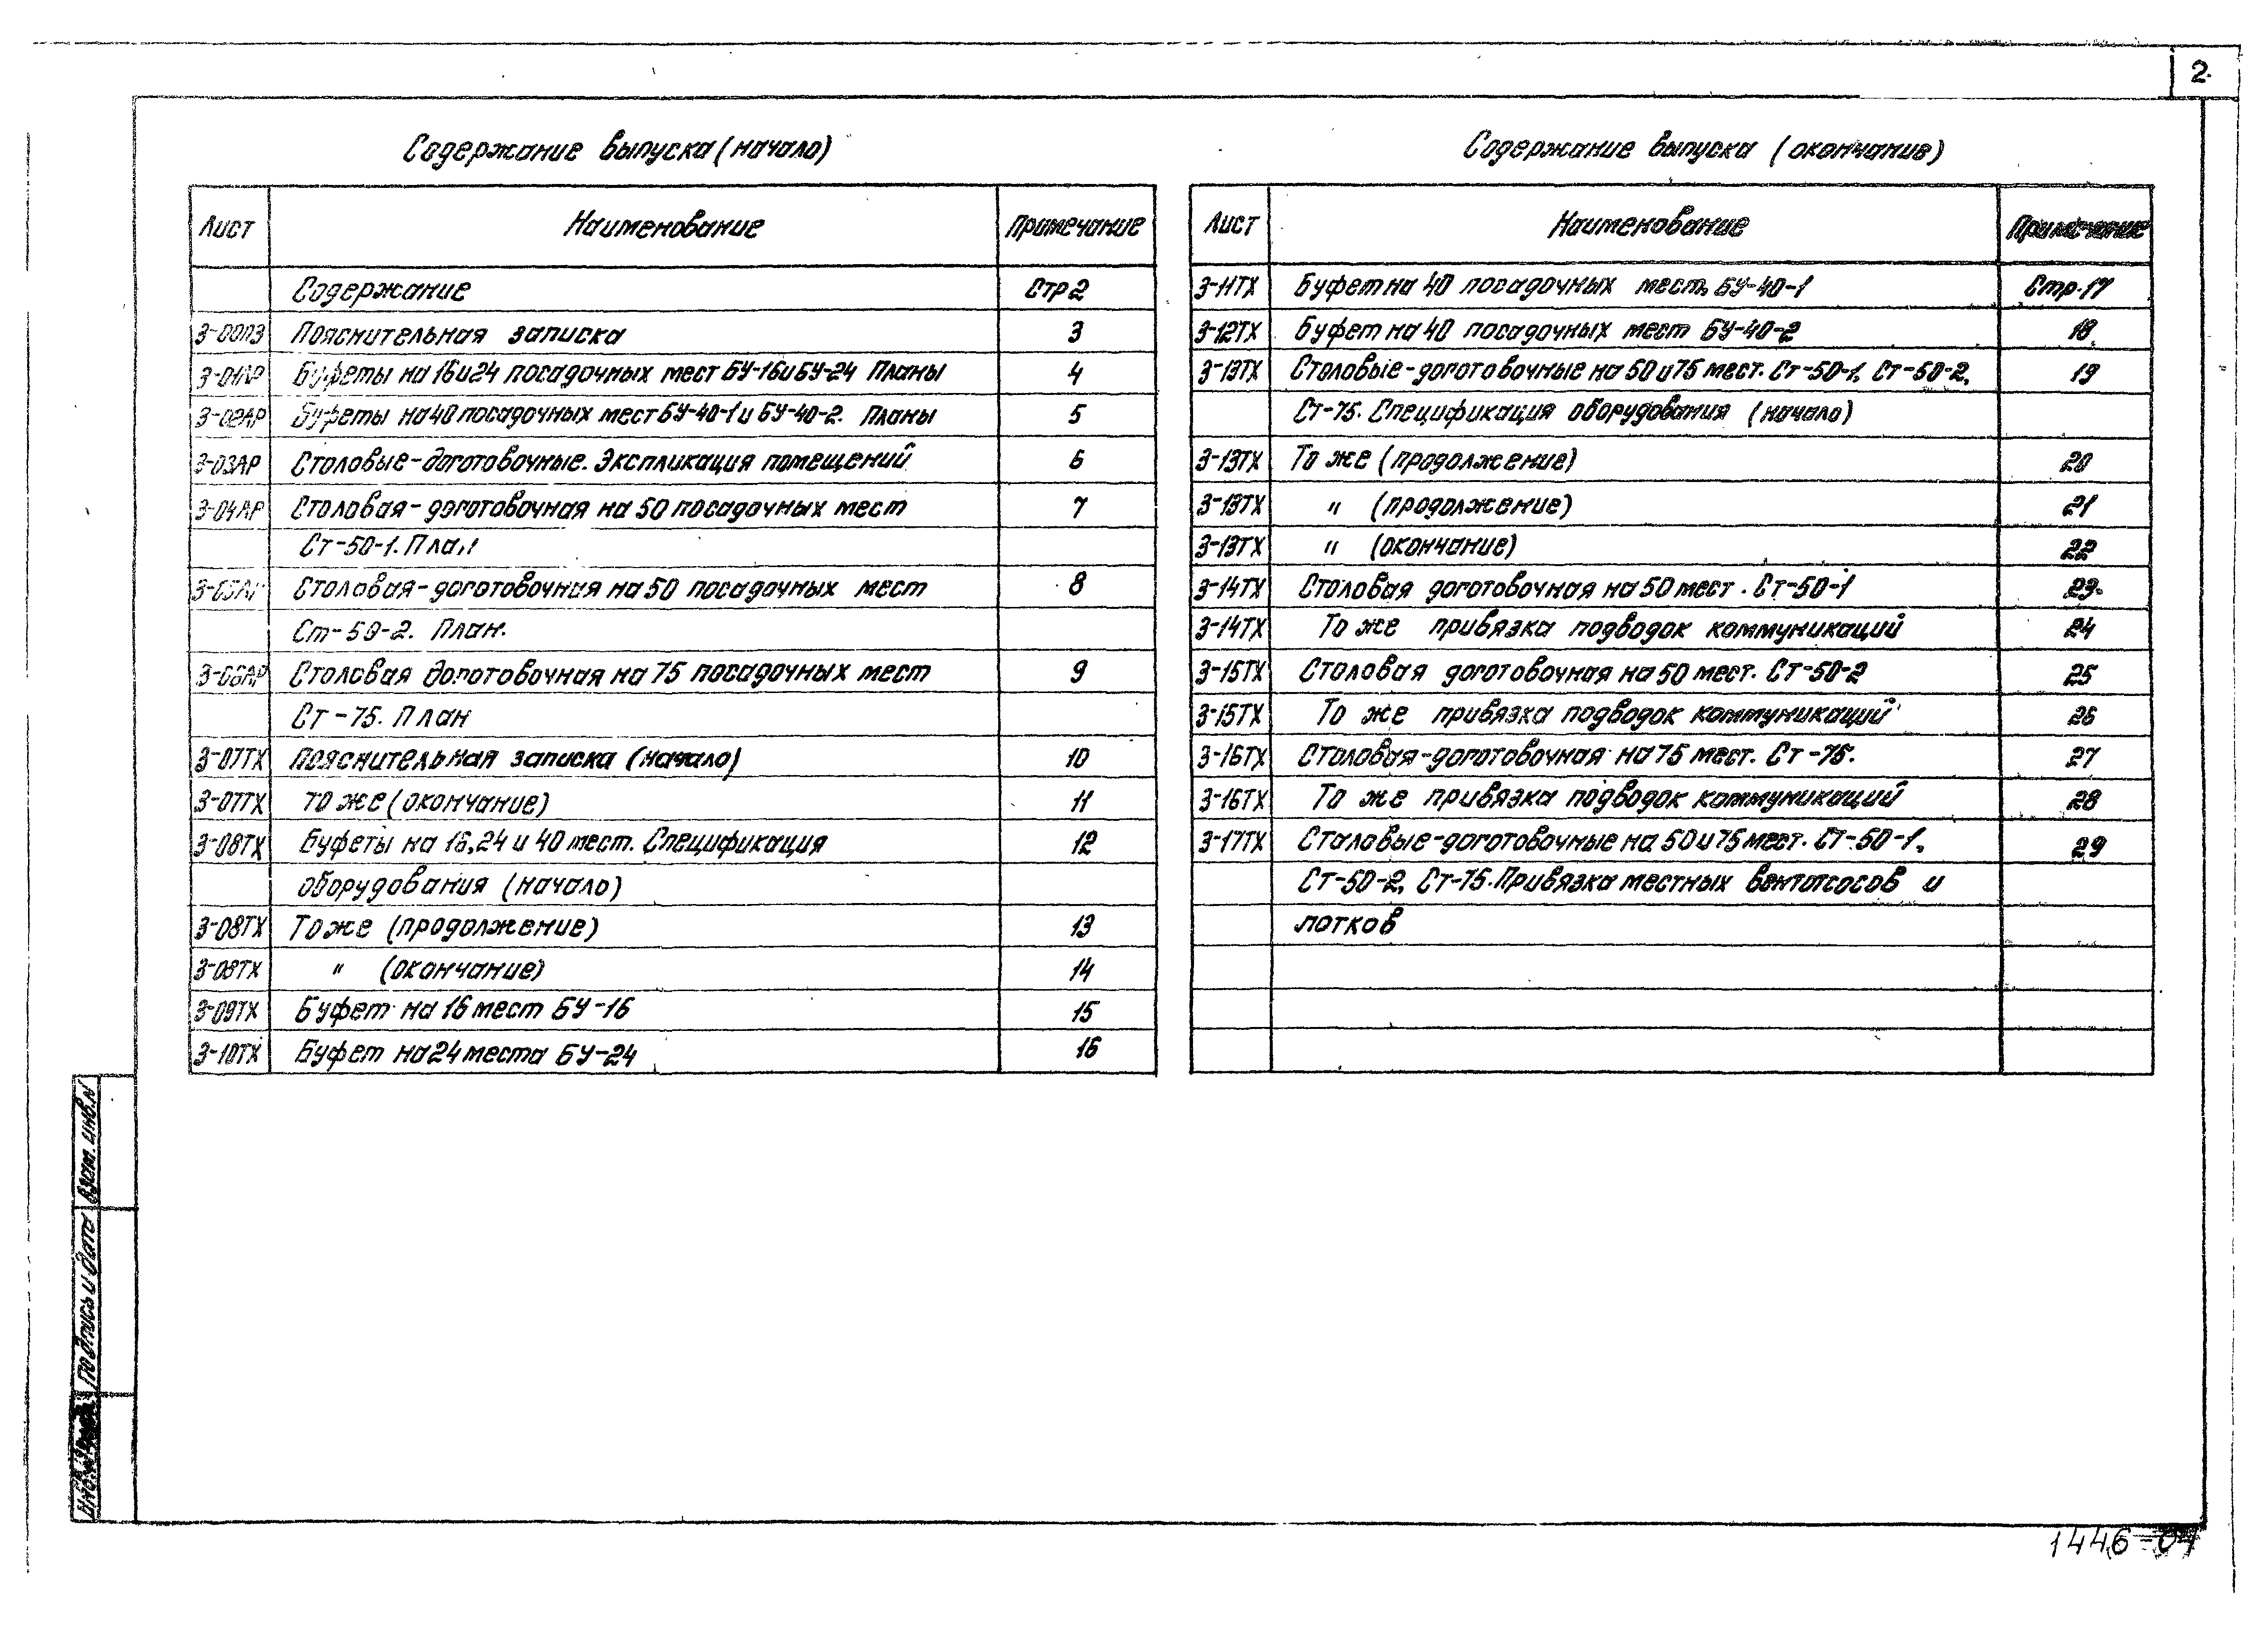 2
Содержание выпуска (начало)
Лист Наименование Примечание
Содержание Стр 2
3-00ПЗ Пояснительная записка 3
3-01АР Буфеты на 16 и 24 посадочных мест БУ-16 и БУ-24 Планы 4
3-02АР Буфеты на 40 посадочных мест БУ-40-1 и БУ-40-2. Планы 5
3-03АР Столовые-доготовочные. Экспликация помещений 6
3-04АР Столовая-доготовочная на 50 посадочных мест 7
Ст-50-1. План
3-05АР Столовая-доготовочная на 50 посадочных мест 8
Ст-50-2. План.
3-06АР Столовая доготовочная на 75 посадочных мест 9
Ст-75. План
3-07ТХ Пояснительная записка (начало) 10
3-07ТХ то же (окончание) 11
3-08ТХ Буфеты на 16, 24 и 40 мест. Спецификация 12
оборудования (начало)
3-08ТХ То же (продолжение) 13
3-08ТХ " (окончание) 14
3-09ТХ Буфет на 16 мест БУ-16 15
3-10ТХ Буфет на 24 места БУ-24 16
Содержание выпуска (окончание)
Лист Наименование Примечание
3-11ТХ Буфет на 40 посадочных мест, БУ-40-1 Стр. 17
3-12ТХ Буфет на 40 посадочных мест БУ-40-2 18
3-13ТХ Столовые-доготовочные на 50 и 75 мест. Ст-50-1, Ст-50-2, 19
Ст-75. Спецификация оборудования (начало)
3-13ТХ То же (продолжение) 20
3-13ТХ " (продолжение) 21
3-13ТХ " (окончание) 22
3-14ТХ Столовая доготовочная на 50 мест. Ст-50-1 23
3-14ТХ То же привязка подводок коммуникаций 24
3-15ТХ Столовая доготовочная на 50 мест. Ст-50-2 25
3-15ТХ То же привязка подводок коммуникаций 26
3-16ТХ Столовая-доготовочная на 75 мест. Ст-75. 27
3-16ТХ То же привязка подводок коммуникаций 28
3-17ТХ Столовые-доготовочные на 50 и 75 мест. Ст-50-1, 29
Ст-50-2, Ст-75. Привязка местных вентотсосов и
лотков
Взам. инв. N
Подпись и дата
1446-04